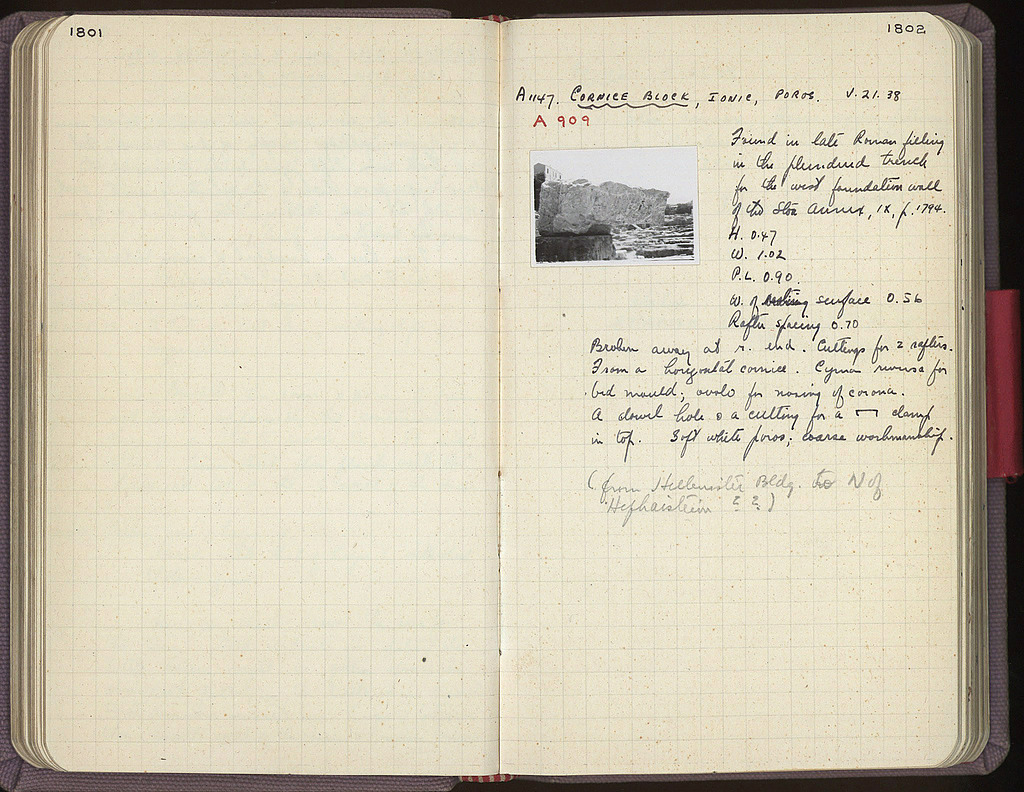 1801
1802
A1147. CORNICE BLOCK, IONIC, POROS. V.21.38
A 909
Found in late Roman filling
in the plundered trench
for the west foundation wall
of the Stoa Annex, IX, p. 1794.
H. 0.47
W. 1.02
P.L. 0.90
W. of surface 0.56
Rafter spacing 0.70
Broken away at r. end. Cuttings for 2 rafters.
From a horizontal cornice. Cyma reversa for
bed mould; ovolo for nosing of corona.
A dowel hole & a cutting for a ⊓ clamp
in top. Soft white poros; coarse workmanship.
(from Hellenistic Bldg. to N of
Hephaisteion ? ?)